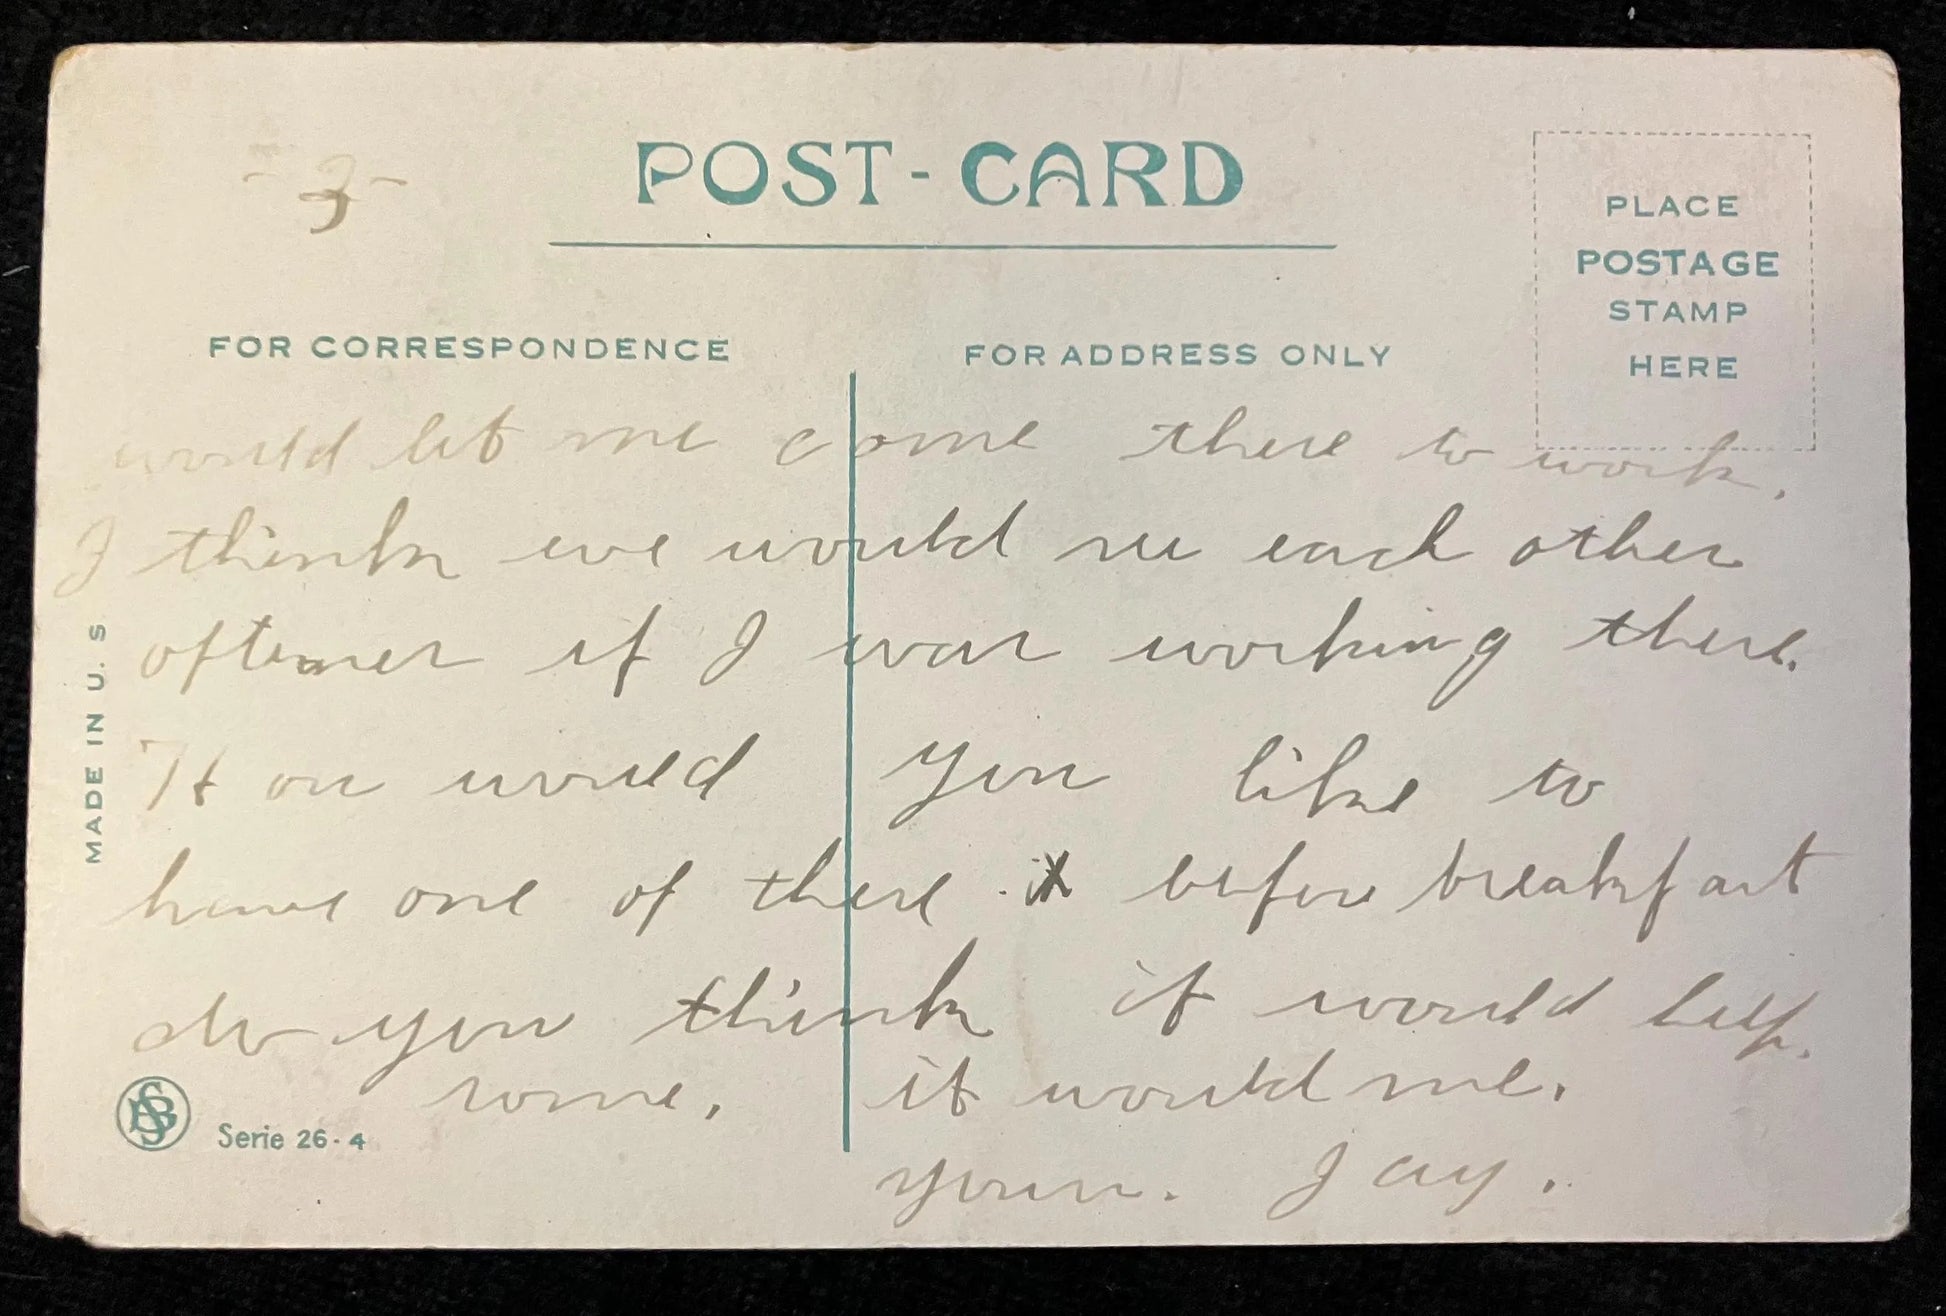 -3-
POST-CARD
PLACE
POSTAGE
STAMP
HERE
FOR CORRESPONDENCE
FOR ADDRESS ONLY
would let me come there to work.
I think we would see each other
oftener if I was working there.
would you like to
have one of these before breakfast
do you think it would help.
some. it would me.
yours. Jay.
MADE IN U. S
Serie 26-4